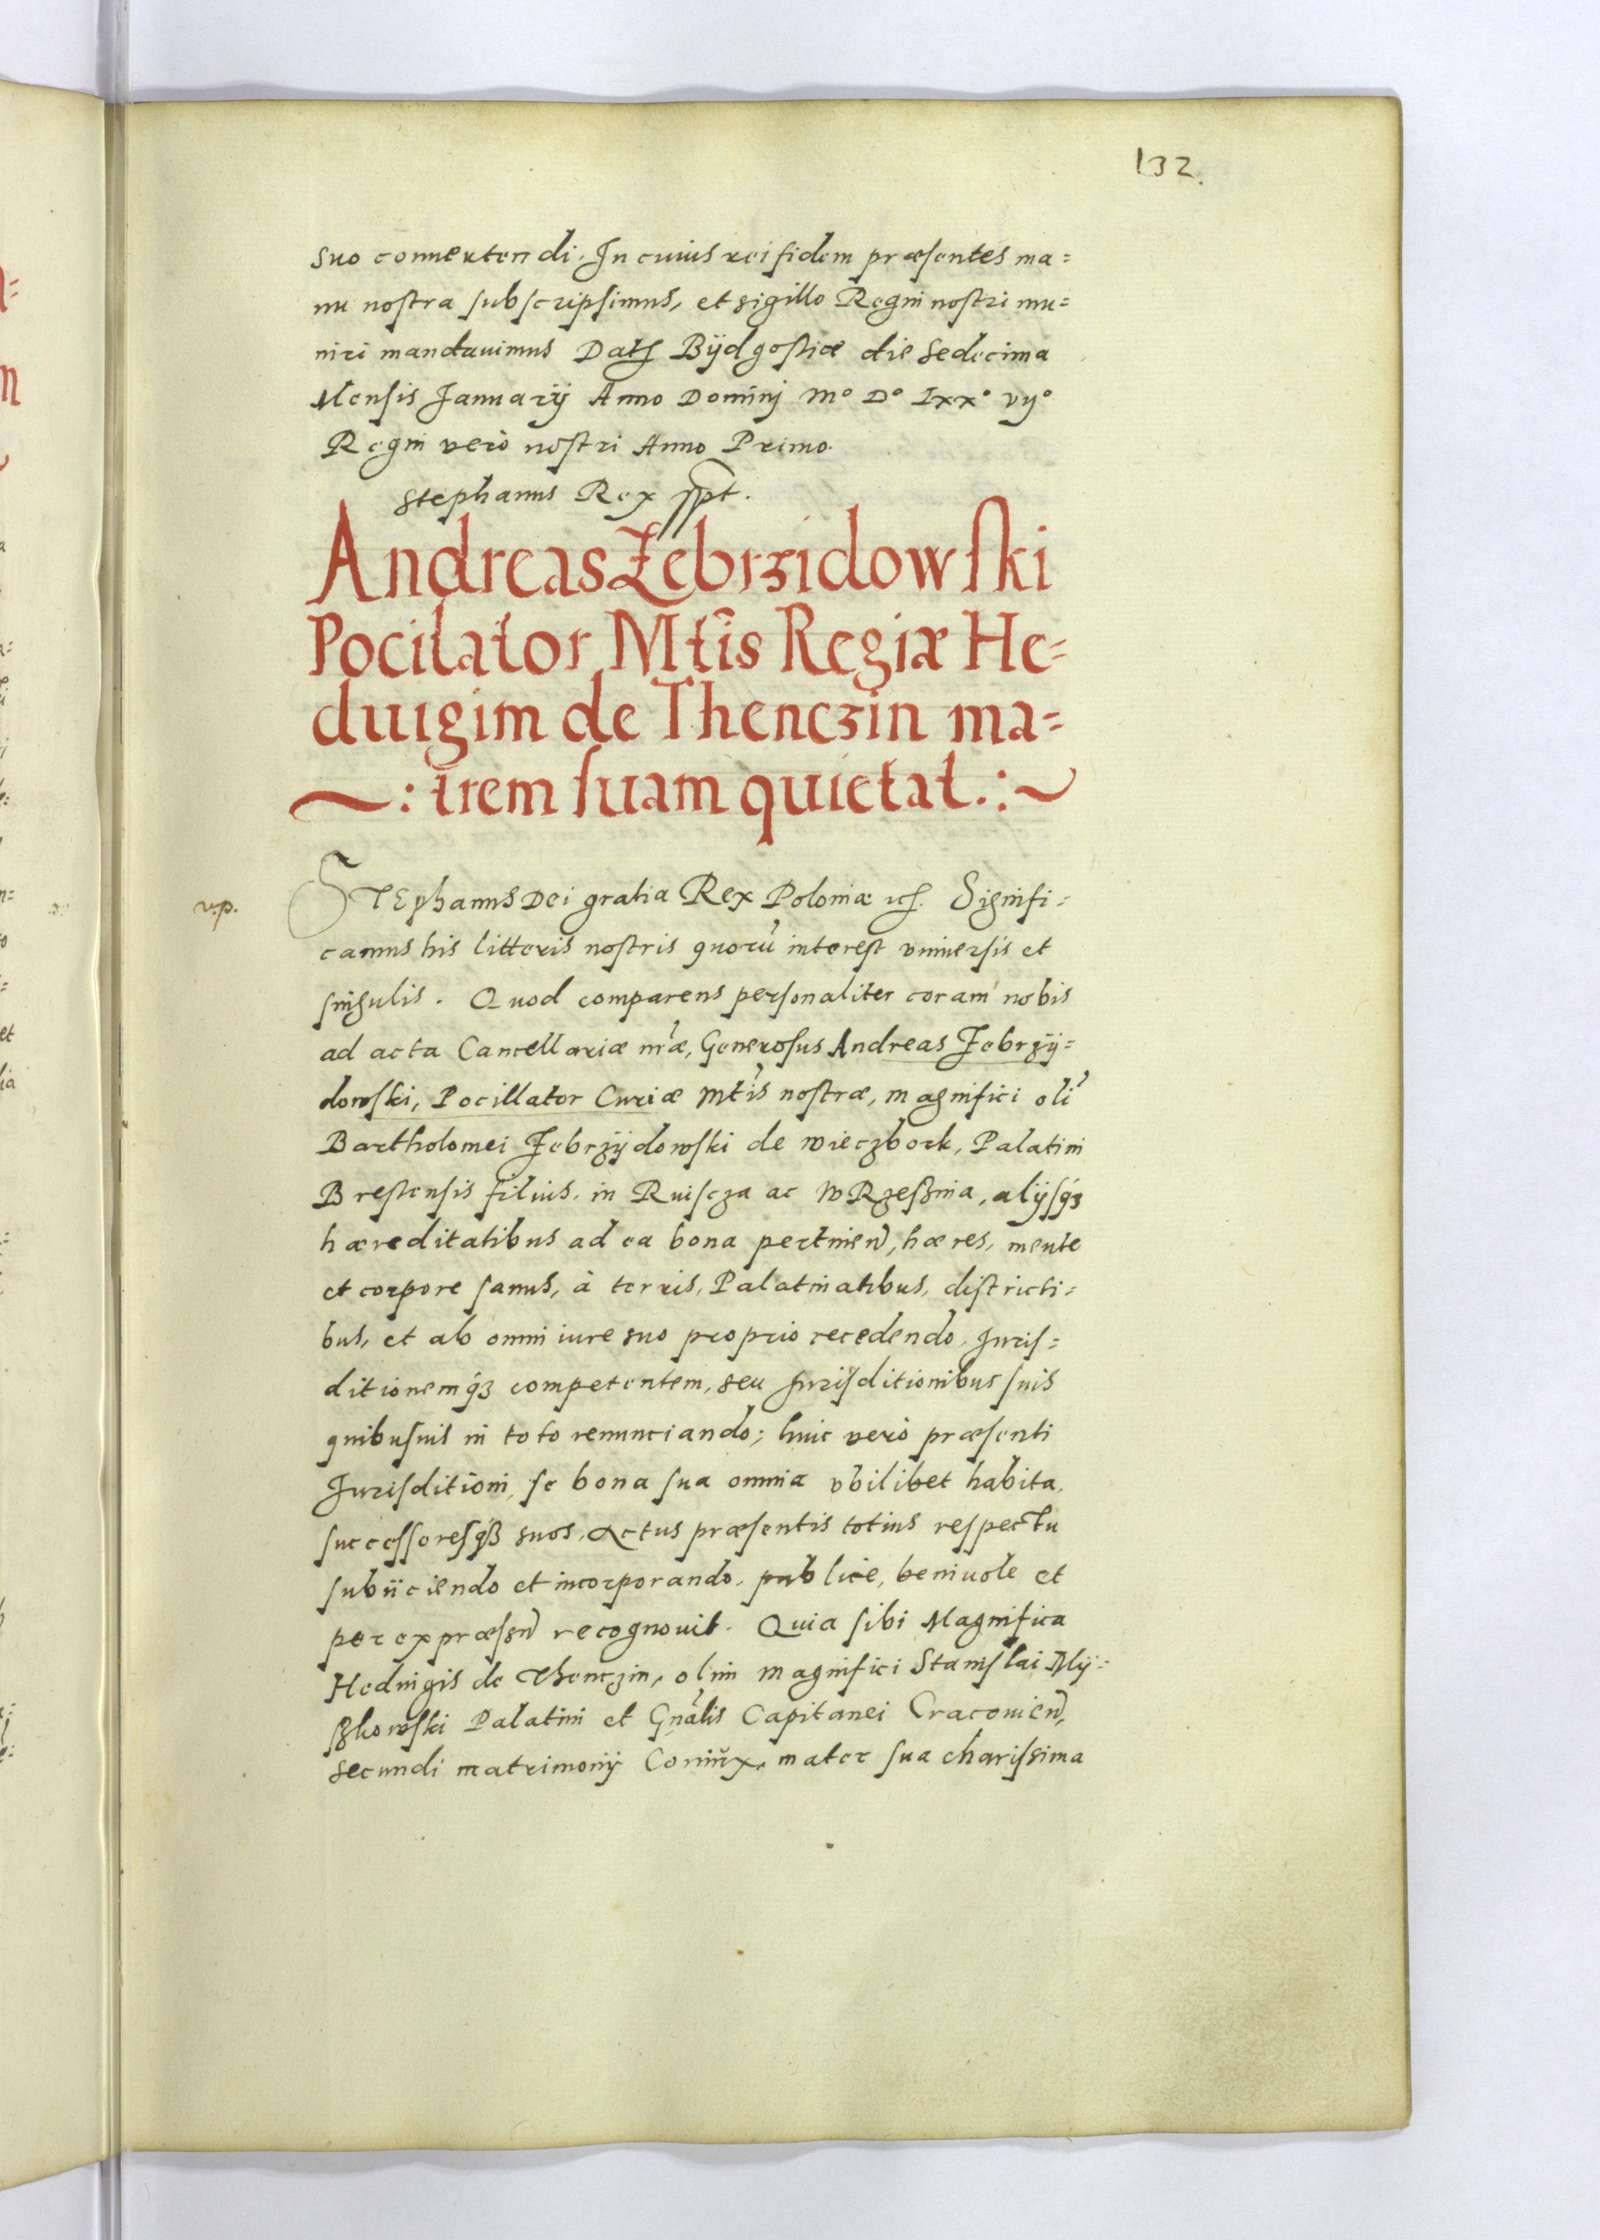 132.
suo conuertendi. In cuius rei fidem præsentes ma=
nu nostra subscripsimus, et sigillo Regni nostri mu=
niri mandauimus Dat Bÿdgostiæ die Sedecima
Mensis Januarÿ Anno Dominj Mº Dº Lxxº vÿº
Regni verò nostri Anno Primo.
Stephanus Rex sspt.
Andreas Zebrzidowski
Pocilator Mtis Regiæ He=
duigim de Thenczin ma=
~: trem suam quietat.:~
v.p.
STEphanus Dei gratia Rex Poloniæ etc. Signifi=
camus his litteris nostris quorũ interest vniuersis et
singulis. Quod comparens personaliter coram nobis
ad acta Cancellariæ nr̃æ, Generosus Andreas Zebrzÿ=
dowski, Pocillator Curiæ Mtis nostræ, magnifici oli
Bartholomei Zebrzÿdowski de wieczbork, Palatini
Brestensis filius, in Ruiscza ac W Rzesznia, alÿsq3
hæreditatibus ad ea bona pertinen, hæres, mente
et corpore sanus, à terris, Palatinatibus, districti=
bus, et ab omni iure suo proprio recedendo, Juris=
ditionemq3 competentem, seu Jurisditionibus suis
quibusuis in toto renunciando; huic verò præsenti
Jurisditioni, se bona sua omnia vbilibet habita,
successoresq3 suos, Actus præsentis totius respectu
subÿciendo et incorporando, publice, beniuole et
per expræssen recognouit. Quia sibi Magnifica
Heduigis de Thenczin, olim magnifici Stanislai Mÿ=
szkowski Palatini et Gnãlis Capitanei Cracouien,
secundi matrimonÿ Coniũx, mater sua charissima